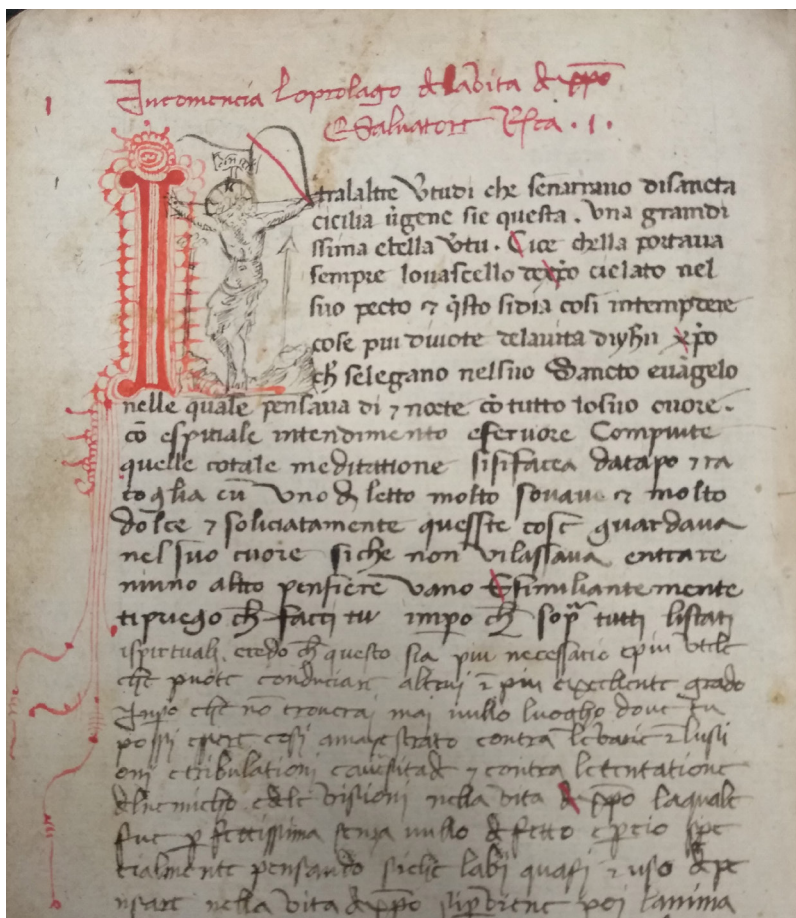 Incomencia loprolago dela vita de xp̄o
E Salvatore n̄ra . 1 .
I
Intralaltre v̄tudi che senarrano disancta
cicilia v̄gene sie questa . Una grandi
ssima ebella v̄tu . Cice chella portava
sempre lo vāscello de xp̄o cielato nel
suo pecto ⁊ q̄sto sidia cosi intemptere
cose piu divote delavita diyh̄u xp̄o
ch̄ selegano nelsuo Sancto evāgelo
nelle quale pensava di ⁊ nocte cō tutto losuo cuore .
cō espitiale intendimento efervore Compiute
quelle cotale meditatione sisifacea datapo ⁊ ra
coglia cū uno d̄ letto molto souave ⁊ molto
dolce ⁊ soliciatamente quesste cose guardava
nelsuo cuore siche non vilassava entrare
niuno altro pensiere vano E similiantemente
tipriego ch̄ facci tu impo ch̄ sop̄ra tutti listati
ispirituali. credo ch̄ questo sia piu necessario epiu utele
che puote conduciare altrui ī piu excellente grado
Inpo che nō troverai mai nullo luogho dove tu
possi essere cosi amaestrato contra levane ī lusi
oni etribulationi ⁊ contra letentatione
delnemicho edele visioni nella vita de xp̄o laquale
fue p̄fettissima senza nullo defetto ep̄cio spe
cialmente pensando siche labi quasi ī uso de pe
nsare nella vita de xp̄o poi lanima